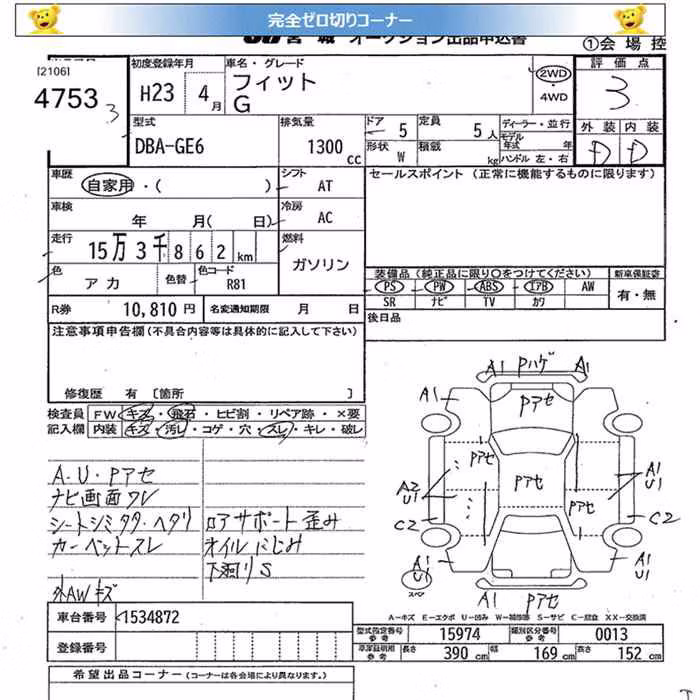 完全ゼロ切りコーナー
JU 宮 城 オークション出品申込書
①会 場 控
[2106]
4753
3
初度登録年月
H23 4月
車名・グレード
フィット
G
2WD
・4WD
評 価 点
3
外 装 内 装
D D
型式
DBA-GE6
排気量
1300 cc
ドア 5
形状 W
定員 5人
積載 kg
ディーラー・並行
モデル年式 年
ハンドル 左・右
車歴
自家用・( )
シフト
AT
セールスポイント (正常に機能するものに限ります)
車検
年 月( 日)
冷房
AC
走行
15万3千862km
燃料
ガソリン
色
アカ
色替
色コード
R81
装備品(純正品に限り○をつけてください)
PS PW ABS エアB AW
SR ナビ TV カワ
新車保証書
有・無
R券
10,810円
名変通知期限 月 日
後日品
注意事項申告欄(不具合内容等は具体的に記入して下さい)
修復歴 有 [箇所 ]
検査員 FW キズ・飛石・ヒビ割・リペア跡・×要
記入欄 内装 キズ・汚レ・コゲ・穴・スレ・キレ・破レ
A・U・Pアセ
ナビ画面ワレ
シートシミ タタ・ヘタリ
カーペットスレ
ロアサポート歪み
オイルにじみ
下廻りS
外AWキズ
A1 Pハゲ A1
A1
Pアセ
Pアセ
Pアセ
Pアセ
A2
U1
A1
U1
C2
C2
A1
U1
A1
U1
スペア
A1 Pアセ
A-キズ E-エクボ U-凹み W-補修跡 S-サビ C-腐食 XX-交換済
車台番号
1534872
登録番号
型式指定番号
参考
15974
類別区分番号
参考
0013
車庫証明用
参考
長さ 390cm
幅 169cm
高さ 152cm
希望出品コーナー(コーナーは各会場により異なります。)